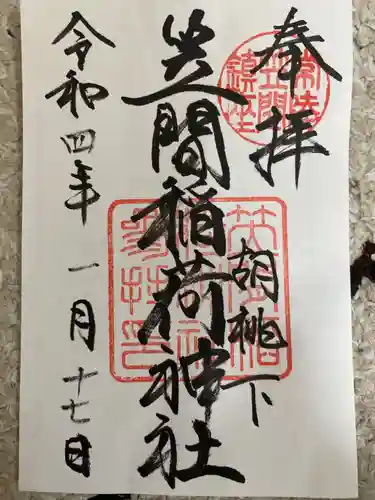 奉拝
胡桃下
笠間稲荷神社
令和四年一月十七日
常陸
笠間
鎮座